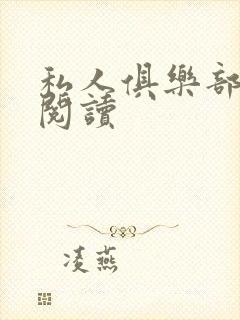 私人俱樂部
閱讀
凌燕